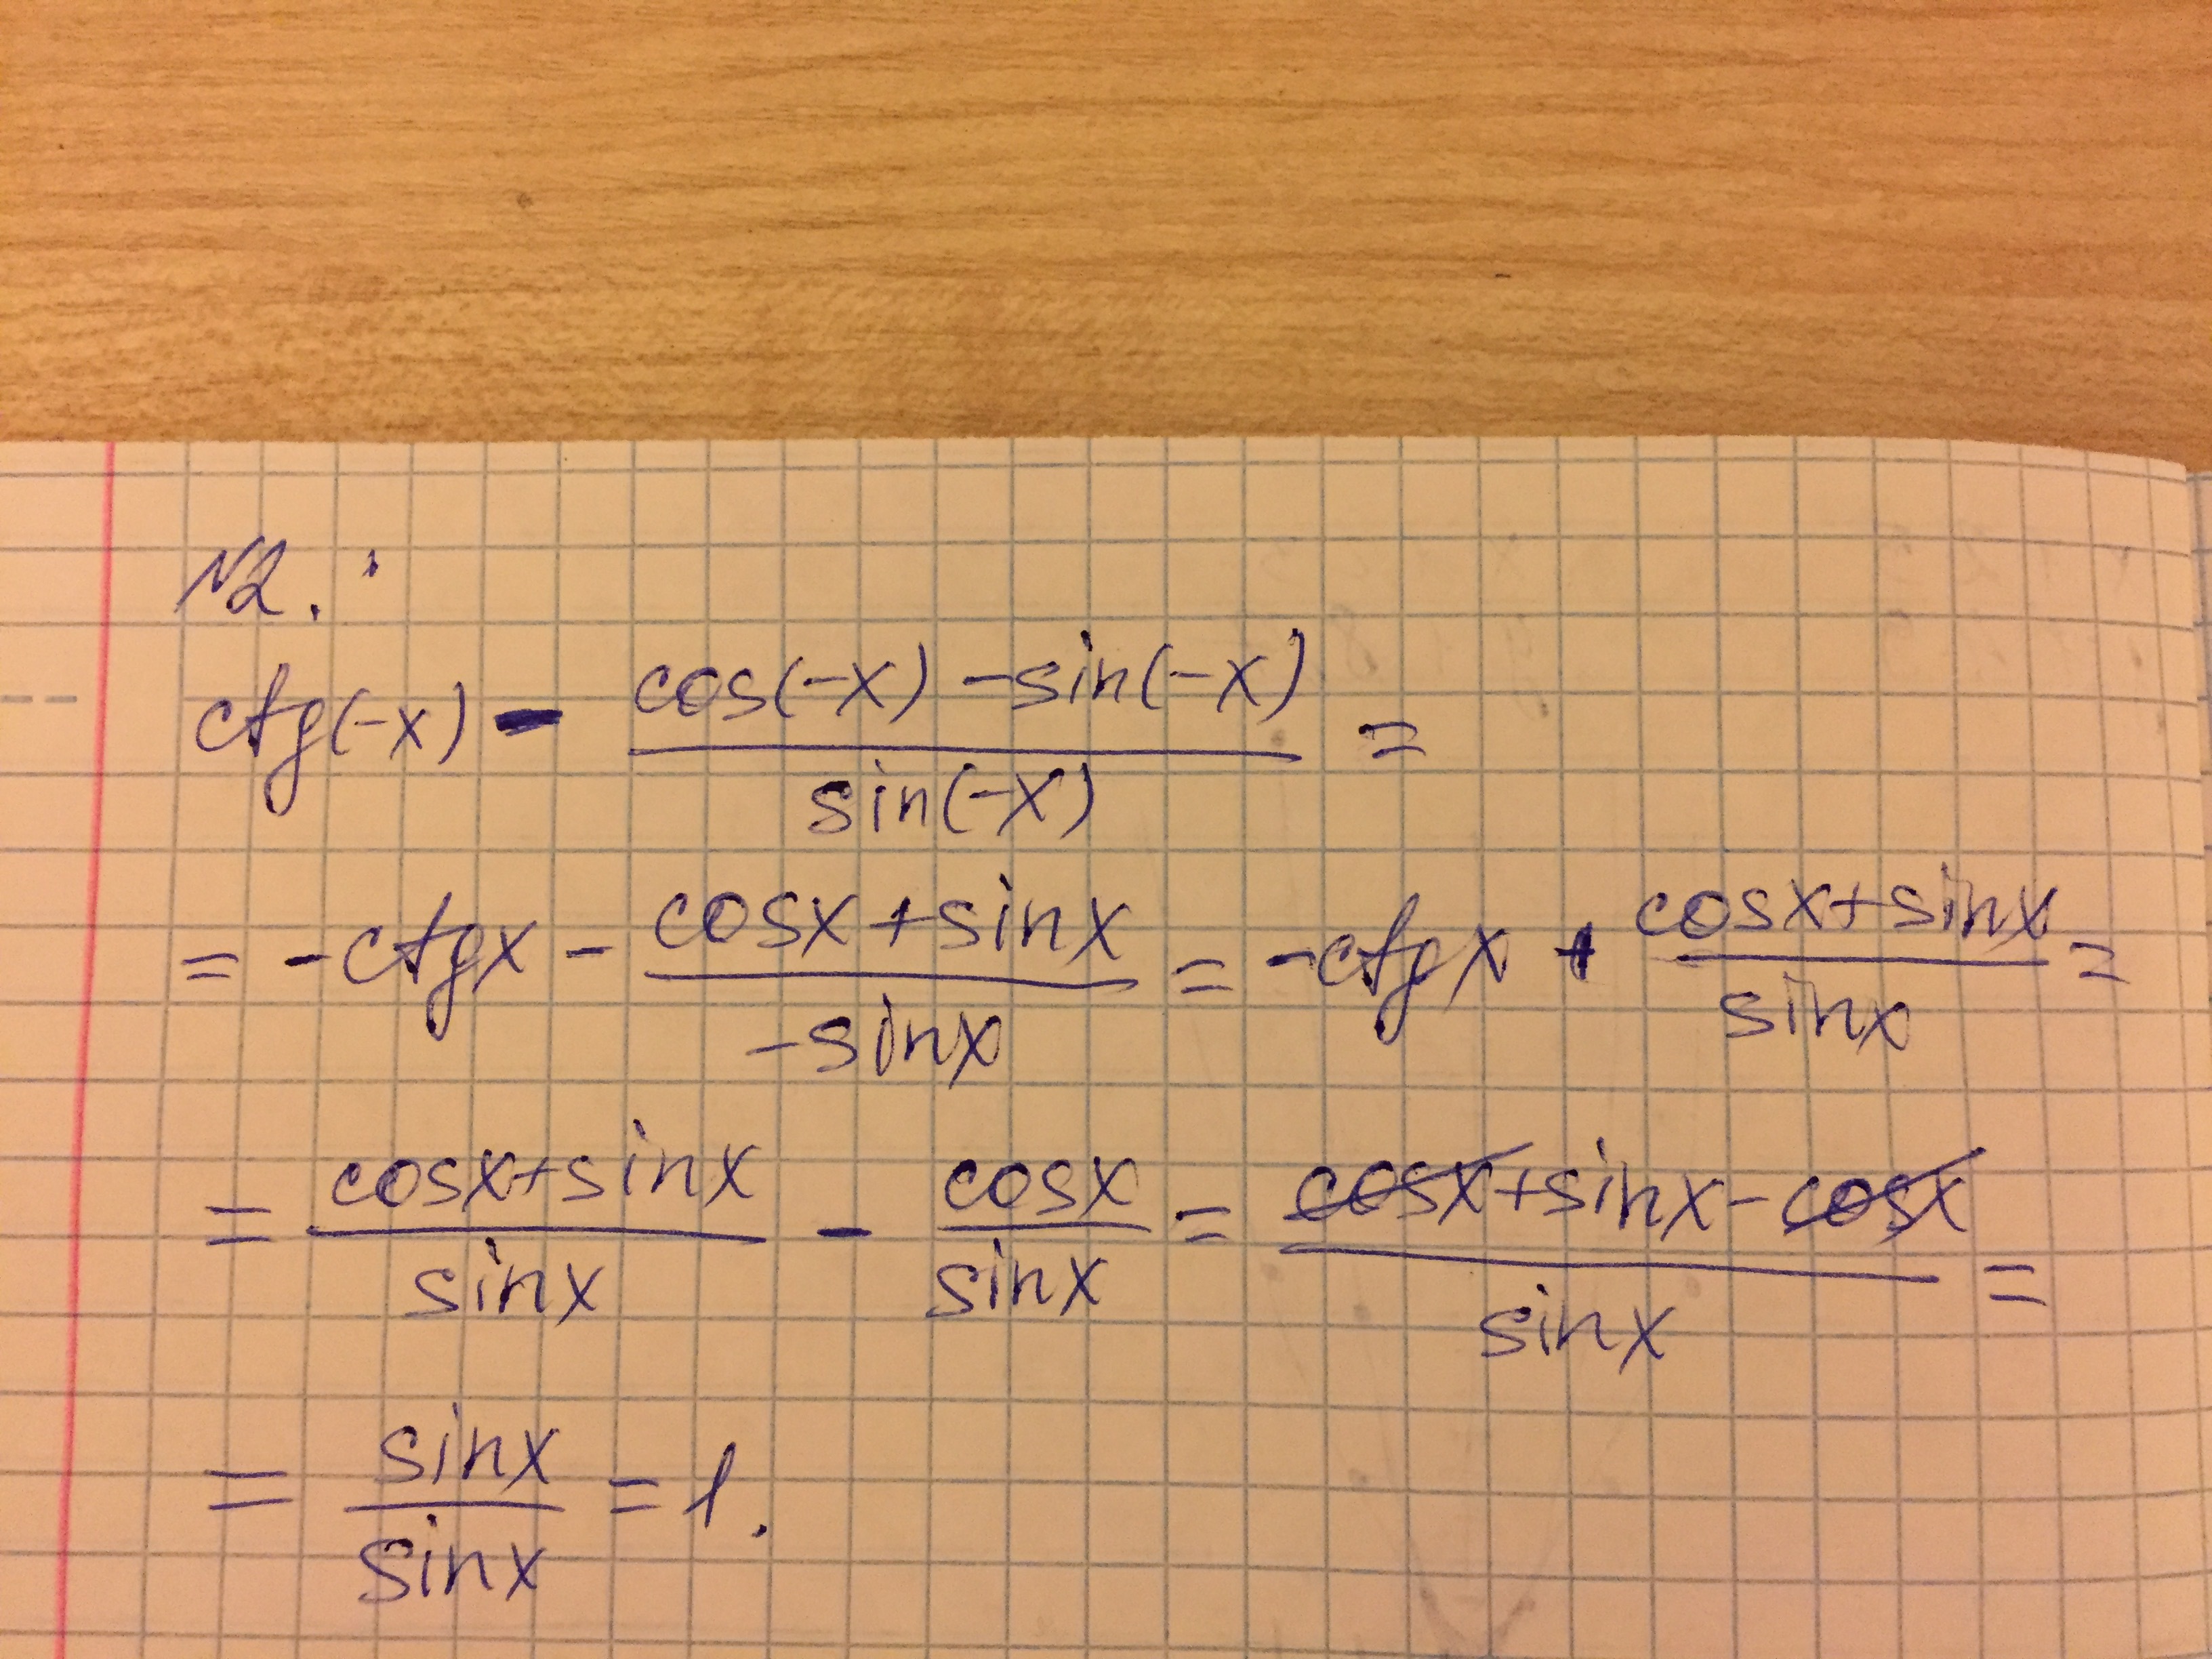 №2.
ctg(-x) - (cos(-x) - sin(-x))/sin(-x) =
= -ctgx - (cosx + sinx)/(-sinx) = -ctgx + (cosx+sinx)/sinx =
= (cosx+sinx)/sinx - cosx/sinx = (cosx+sinx-cosx)/sinx =
= sinx/sinx = 1.